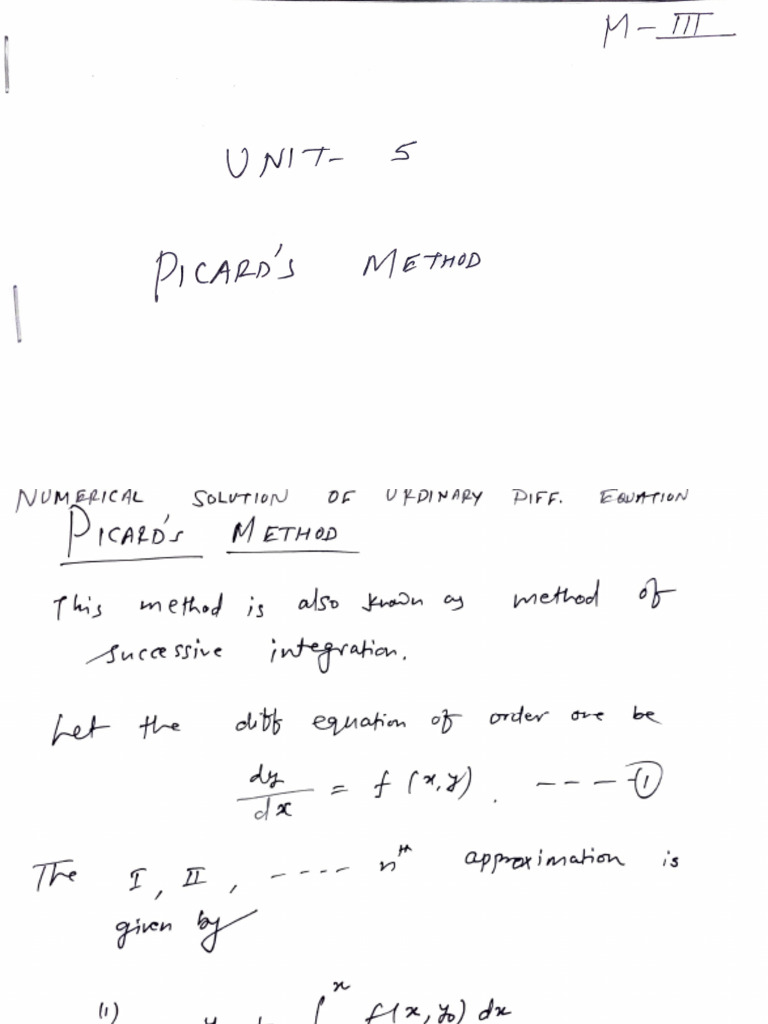 M-III
UNIT- 5
PICARD'S METHOD
NUMERICAL SOLUTION OF URDINARY DIFF. EQUATION
PICARD'S METHOD
This method is also known as method of
successive integration.
Let the diff equation of order one be
dy/dx = f (x,y). ---- (1)
The I, II, ---- nth approximation is
given by
(1) ∫ x f(x, y₀) dx